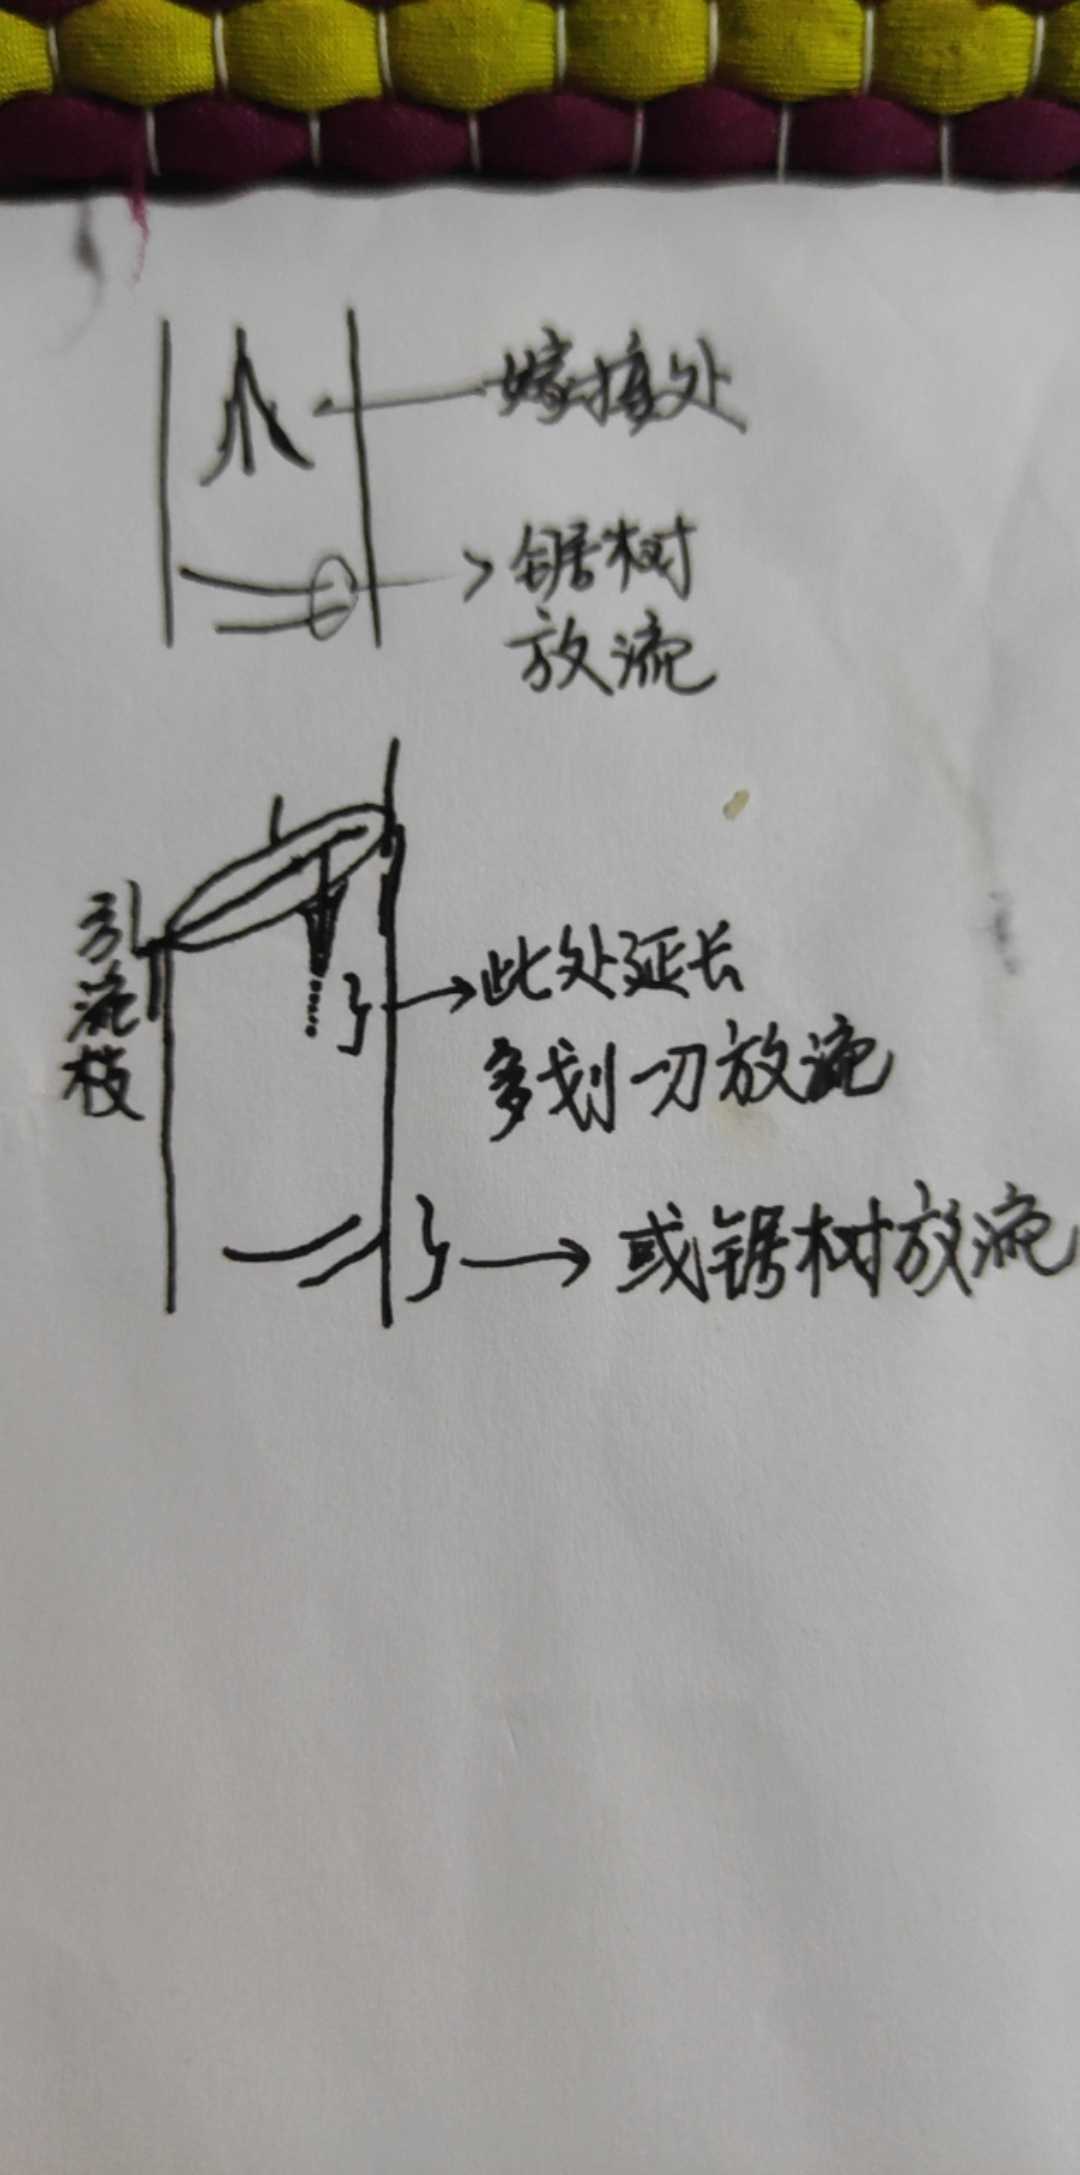 嫁接处
锯树
放流
引流枝
此处延长
多划一刀放流
或锯树放流